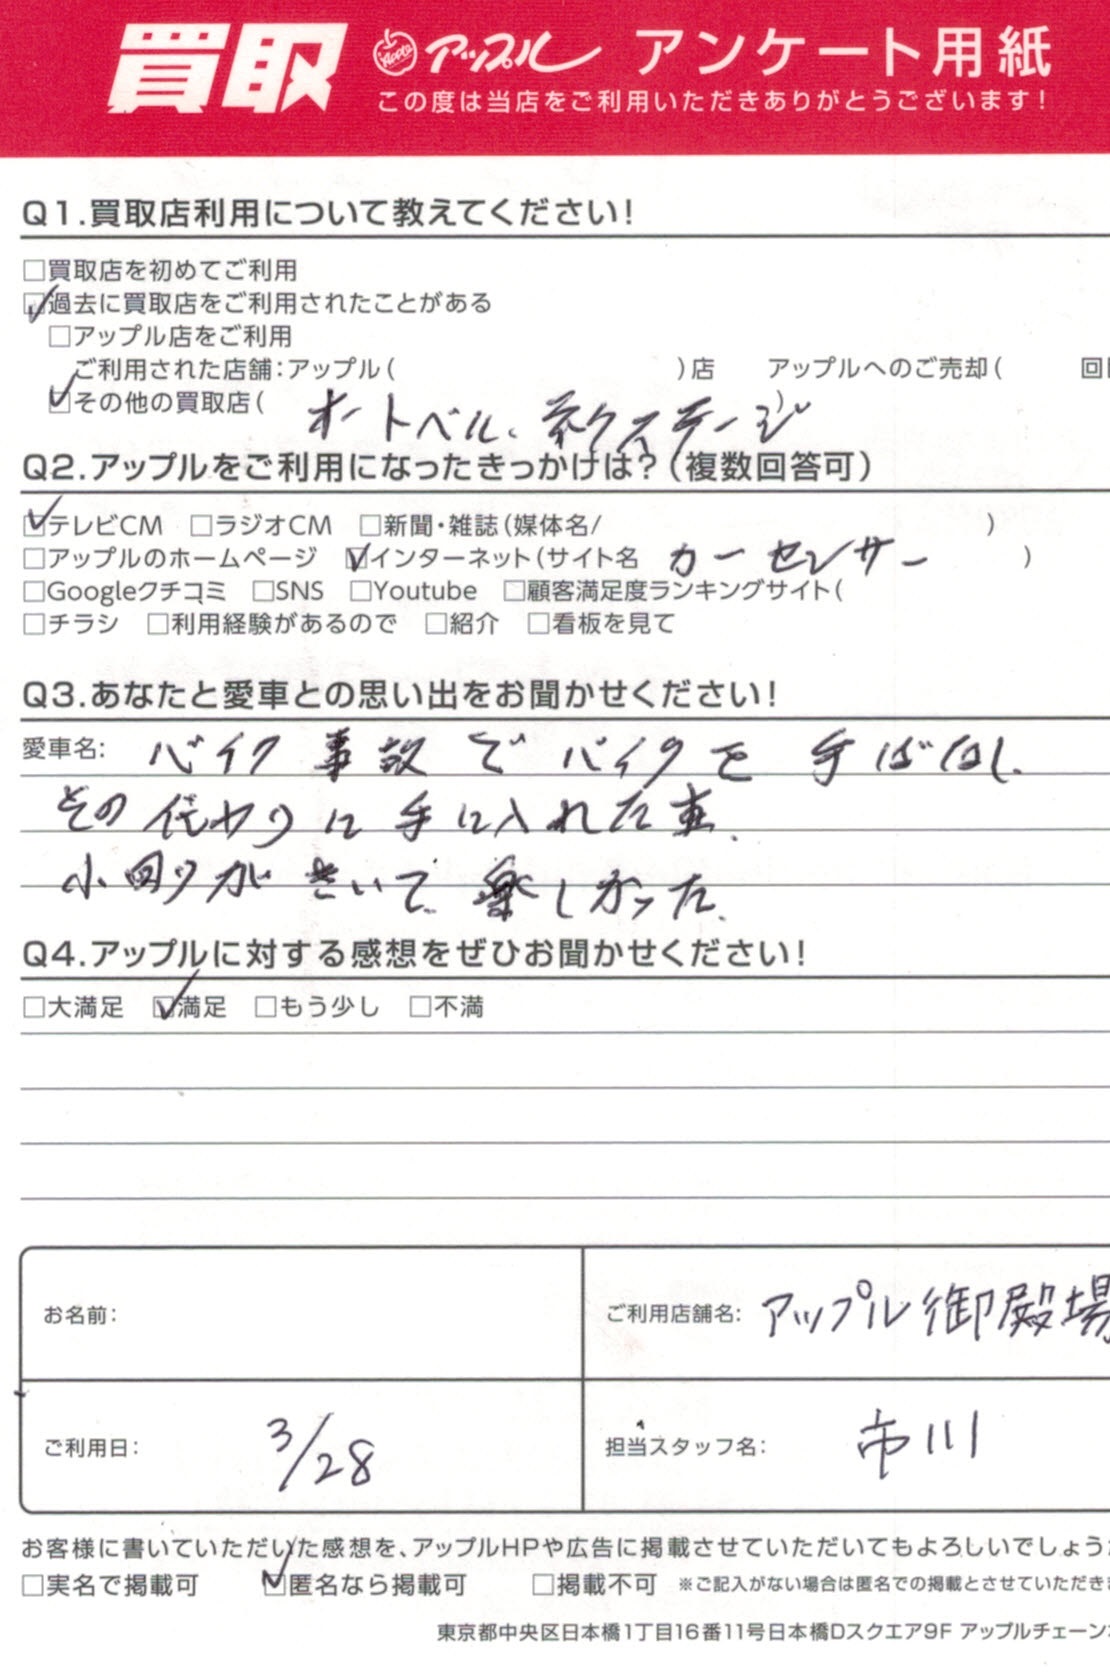 買取 Apple アップル アンケート用紙
この度は当店をご利用いただきありがとうございます!
Q1.買取店利用について教えてください!
□買取店を初めてご利用
☑過去に買取店をご利用されたことがある
□アップル店をご利用
ご利用された店舗:アップル( )店 アップルへのご売却( 回
☑その他の買取店( オートベル、ネクステージ )
Q2.アップルをご利用になったきっかけは?(複数回答可)
☑テレビCM □ラジオCM □新聞・雑誌(媒体名/ )
□アップルのホームページ ☑インターネット(サイト名 カーセンサー )
□Googleクチコミ □SNS □Youtube □顧客満足度ランキングサイト(
□チラシ □利用経験があるので □紹介 □看板を見て
Q3.あなたと愛車との思い出をお聞かせください!
愛車名: バイク事故でバイクを手ばなし、
その代わりに手に入れた車。
小回りがきいて楽しかった。
Q4.アップルに対する感想をぜひお聞かせください!
□大満足 ☑満足 □もう少し □不満
お名前: ご利用店舗名: アップル御殿場
ご利用日: 3/28 担当スタッフ名: 市川
お客様に書いていただいた感想を、アップルHPや広告に掲載させていただいてもよろしいでしょう
□実名で掲載可 ☑匿名なら掲載可 □掲載不可 ※ご記入がない場合は匿名での掲載とさせていただき
東京都中央区日本橋1丁目16番11号日本橋Dスクエア9F アップルチェーン